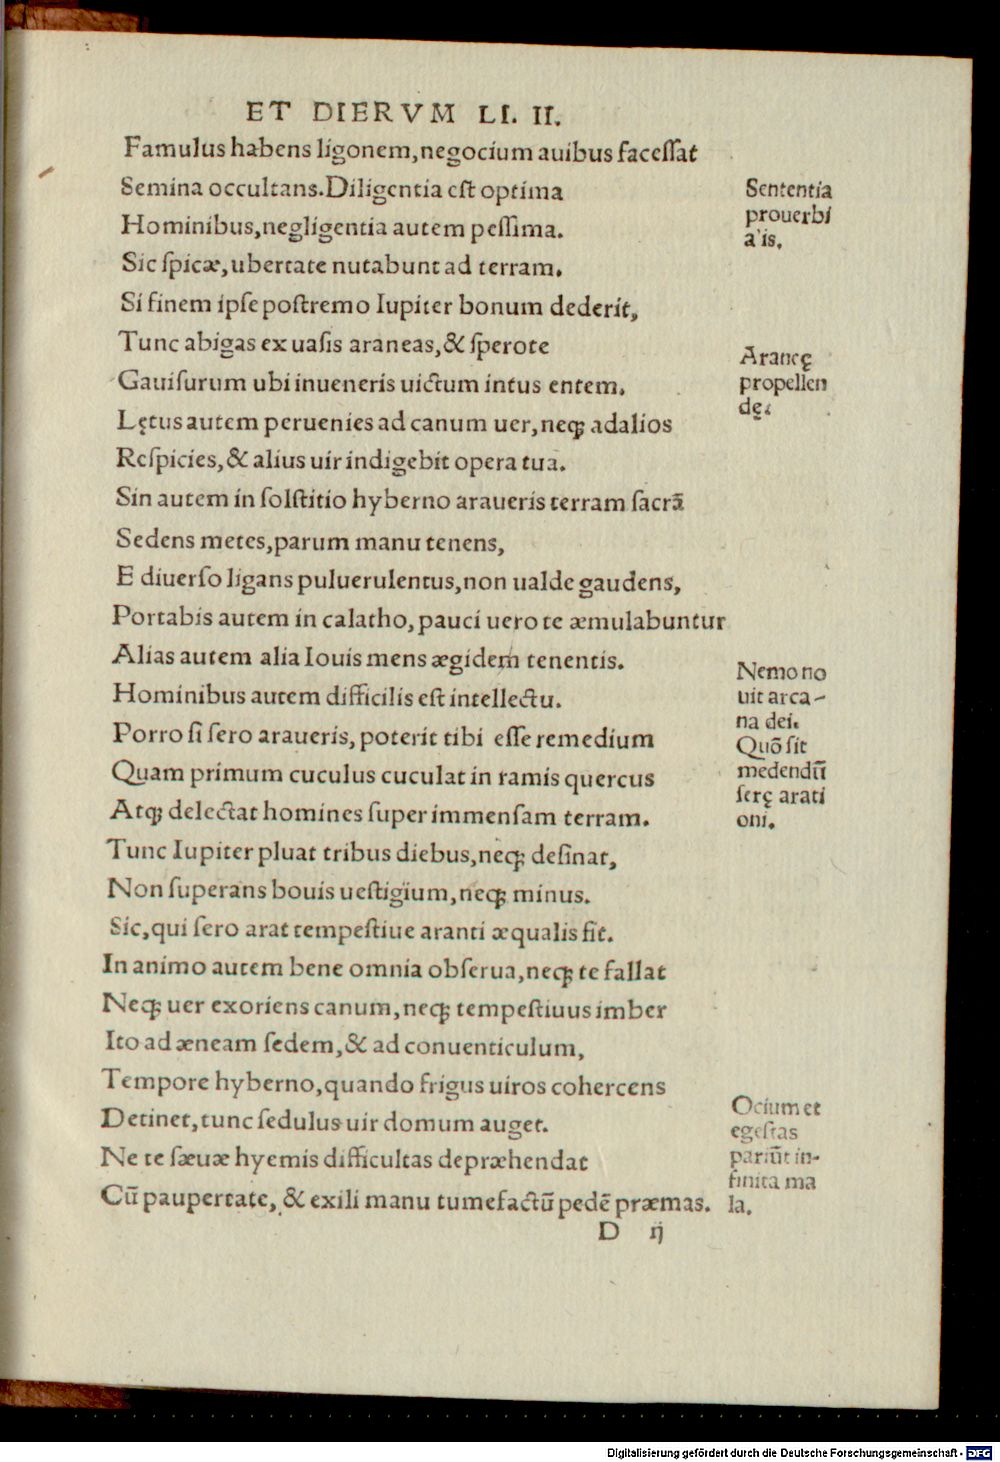 ET DIERVM LI. II.
Famulus habens ligonem, negocium auibus facessat
Semina occultans. Diligentia est optima
Hominibus, negligentia autem pessima.
Sic spicæ, ubertate nutabunt ad terram.
Si finem ipse postremo Iupiter bonum dederit,
Tunc abigas ex uasis araneas, & sperote
Gauisurum ubi inueneris uictum intus entem.
Lętus autem peruenies ad canum uer, neqꝫ ad alios
Respicies, & alius uir indigebit opera tua.
Sin autem in solstitio hyberno araueris terram sacrā
Sedens metes, parum manu tenens,
E diuerso ligans puluerulentus, non ualde gaudens,
Portabis autem in calatho, pauci uero te æmulabuntur
Alias autem alia Iouis mens ægidem tenentis.
Hominibus autem difficilis est intellectu.
Porro si sero araueris, poterit tibi esse remedium
Quam primum cuculus cuculat in ramis quercus
Atqꝫ delectat homines super immensam terram.
Tunc Iupiter pluat tribus diebus, neqꝫ desinat,
Non superans bouis uestigium, neqꝫ minus.
Sic, qui sero arat tempestiue aranti æqualis fit.
In animo autem bene omnia obserua, neqꝫ te fallat
Neqꝫ uer exoriens canum, neqꝫ tempestiuus imber
Ito ad æneam sedem, & ad conuenticulum,
Tempore hyberno, quando frigus uiros cohercens
Detinet, tunc sedulus uir domum auget.
Ne te sæuæ hyemis difficultas depræhendat
Cū paupertate, & exili manu tumefactū pedē præmas.
D ij
Sententia
prouerbi
a'is.
Araneę
propellen
dę.
Nemo no
uit arca-
na dei.
Quō sit
medendū
serę arati
oni.
Ocium et
egestas
pariūt in-
finita ma
la.
Digitalisierung gefördert durch die Deutsche Forschungsgemeinschaft - DFG